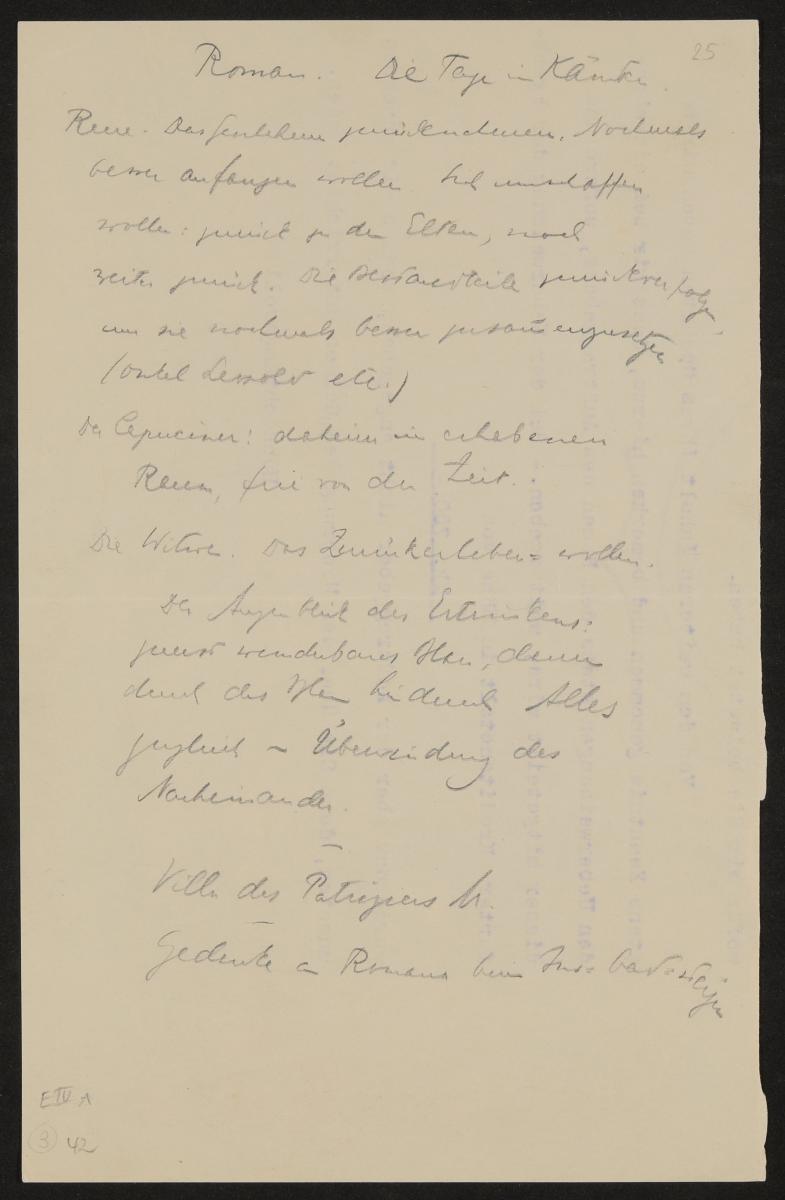 25
Roman. Die Tage in Kärnten
Reue. Das Geschehene zurücknehmen. Nochmals
besser anfangen wollen. Sich umschaffen
wollen: zurück zu den Eltern, noch
weiter zurück. Die Bestandteile zurückverfolgen,
um sie nochmals besser zusam̅enzusetzen
(Onkel etc.)
Der Capuciner: daheim in erhabenen
Raum, frei von der Zeit.
Die Witwe. Das Zurückerleben-wollen.
Der Augenblick des Ertrinkens:
zuerst wunderbares Blau, dann
durch das Blau hindurch Alles
zugleich – Überwindung des
Nacheinander.
–
Villa des Patriziers M.
–
Gedanke an Romana beim Ins-bad-steigen
E IV A
3 42